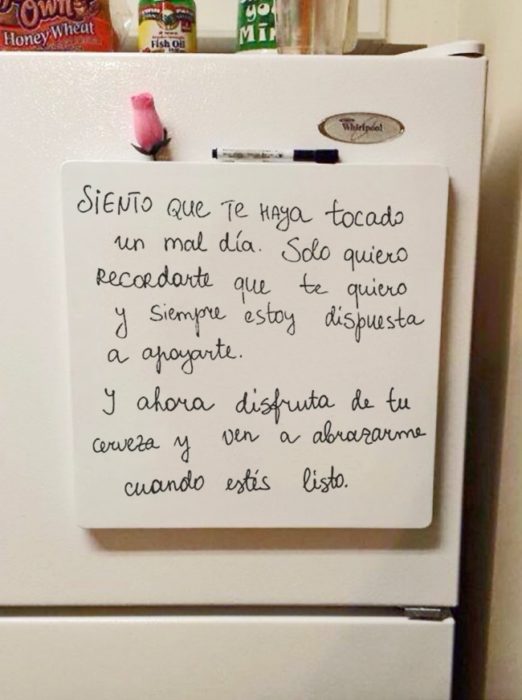 Own
Honey Wheat
Fish Oil
Whirlpool
SiENTO QUE TE HAYA tocado
un mal día. Solo quiero
RECORdARte que te quiero
y siempre estoy dispuesta
a apoyarte.
Y ahora disfruta de tu
cerveza y ven a abrazarme
cuando estés listo.